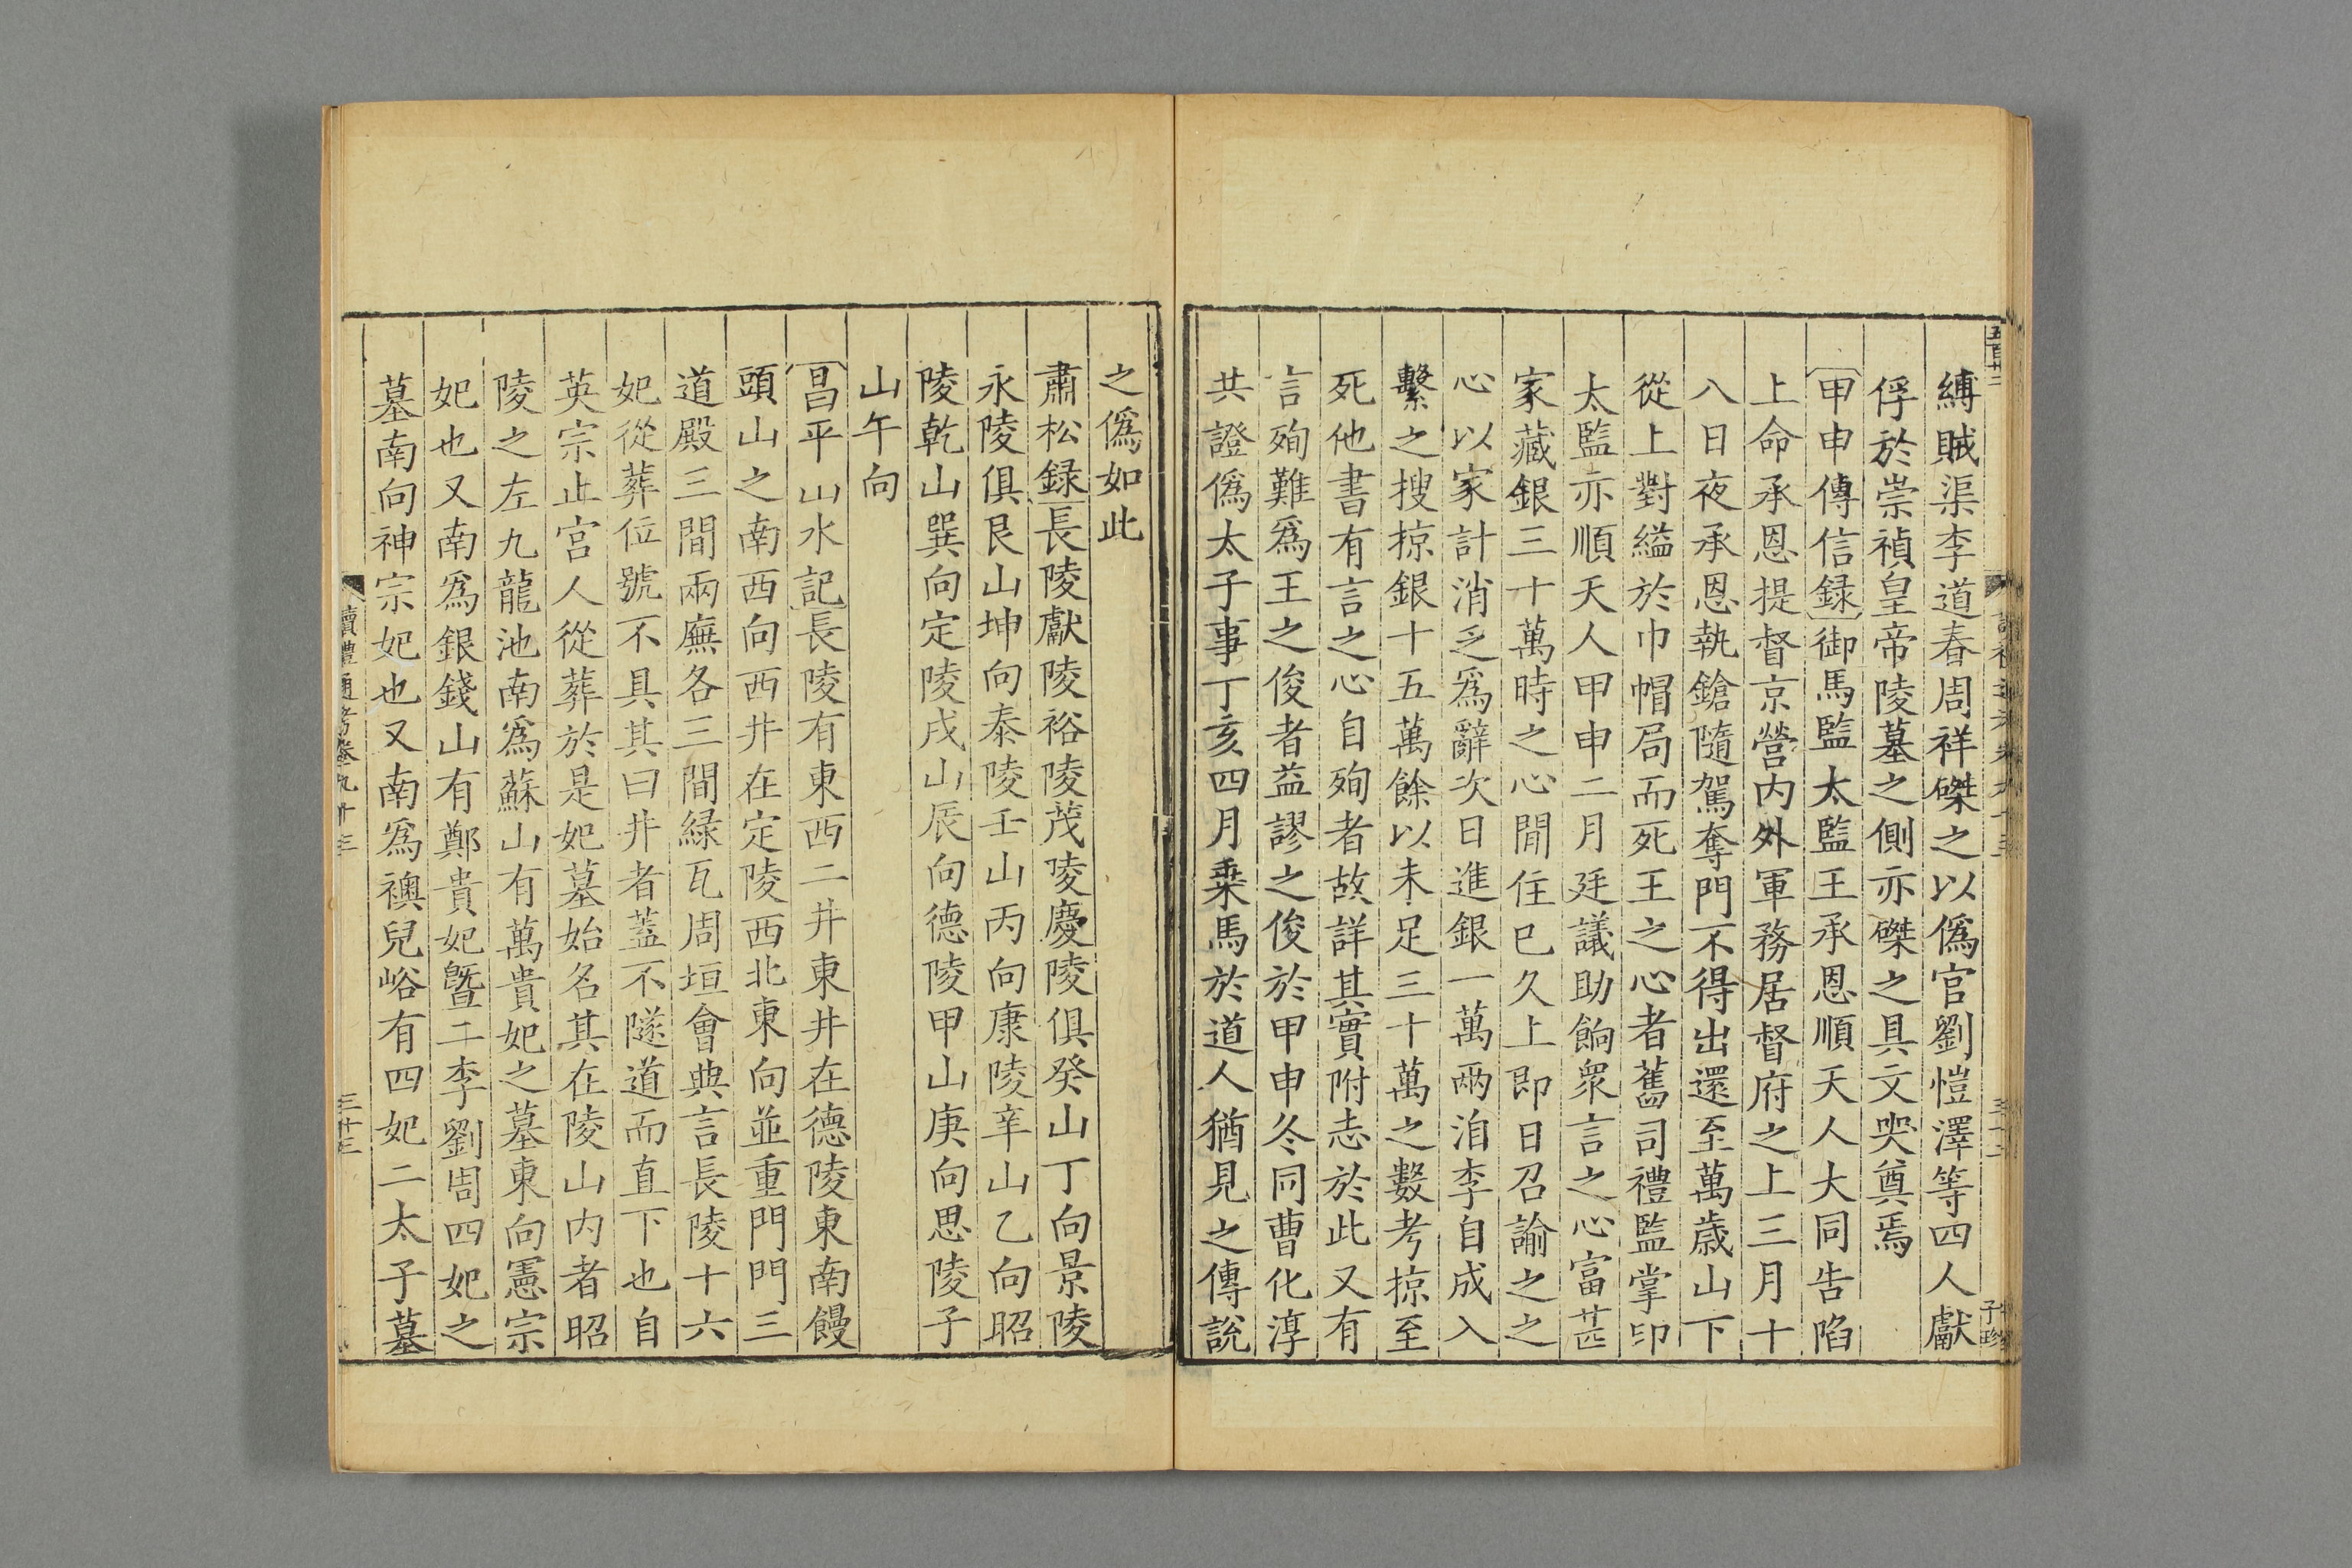 縛賊渠李道春周祥磔之以僞官劉愷澤等四人獻
俘於崇禎皇帝陵墓之側亦磔之具文哭奠焉
甲申傳信録御馬監太監王承恩順天人大同告陷
上命承恩提督京營内外軍務居督府之上三月十
八日夜承恩執鎗隨駕奪門不得出還至萬歲山下
從上對縊於巾帽局而死王之心者舊司禮監掌印
太監亦順天人甲申二月廷議助餉衆言之心富甚
家藏銀三十萬時之心閒住已久上即日召諭之之
心以家計消乏爲辭次日進銀一萬兩洎李自成入
繫之搜掠銀十五萬餘以未足三十萬之數考掠至
死他書有言之心自殉者故詳其實附志於此又有
言殉難爲王之俊者益謬之俊於甲申冬同曹化淳
共證僞太子事丁亥四月乗馬於道人猶見之傳說
之僞如此
肅松録長陵獻陵裕陵茂陵慶陵俱癸山丁向景陵
永陵俱艮山坤向泰陵壬山丙向康陵辛山乙向昭
陵乾山巽向定陵戌山辰向德陵甲山庚向思陵子
山午向
昌平山水記長陵有東西二井東井在德陵東南饅
頭山之南西向西井在定陵西北東向並重門門三
道殿三間兩廡各三間緑瓦周垣會典言長陵十六
妃從葬位號不具其曰井者蓋不隧道而直下也自
英宗止宫人從葬於是妃墓始名其在陵山内者昭
陵之左九龍池南爲蘇山有萬貴妃之墓東向憲宗
妃也又南爲銀錢山有鄭貴妃暨二李劉周四妃之
墓南向神宗妃也又南爲襖兒峪有四妃二太子墓
讀禮通考卷九十三
三十三